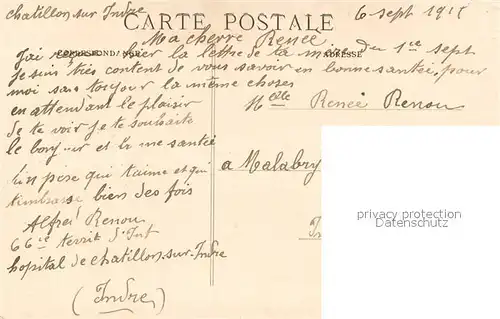 chatillon sur Indre
CARTE POSTALE
6 sept 1915
Ma cherre Renée
CORRESPONDANCE
ADRESSE
J'ai reçu hier la lettre de ta mère du 1er sept
Je suis très content de vous savoir en bonne santée, pour
moi sas toujour la même choses
en attendant le plaisir
de te voir je te souhaite
le bonjour et la me santée
Un pose qui t'aime et qui
t'embrasse bien des fois
Alfred Renou
66 ie territ d'Inf
hopital de chatillon-sur-Indre
(Indre)
Melle Renée Renou
a Malabry
privacy protection
Datenschutz